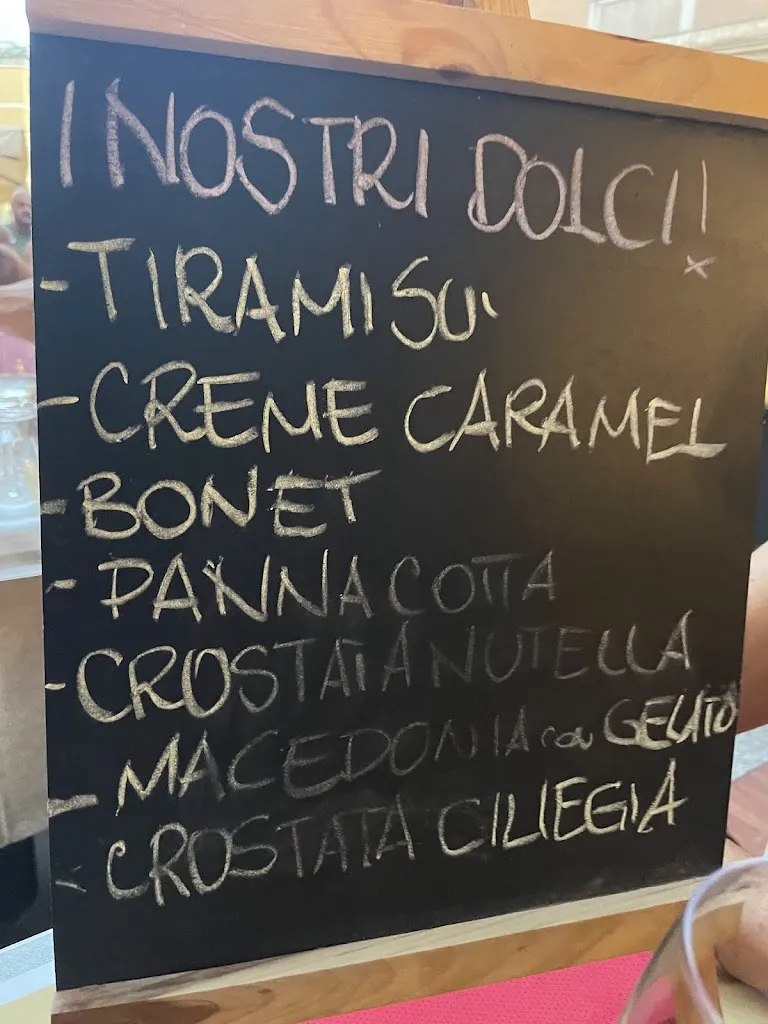 I NOSTRI DOLCI!
- TIRAMISU'
- CREME CARAMEL
- BONET
- PANNA COTTA
- CROSTATA NUTELLA
- MACEDONIA con GELATO
- CROSTATA CILIEGIA